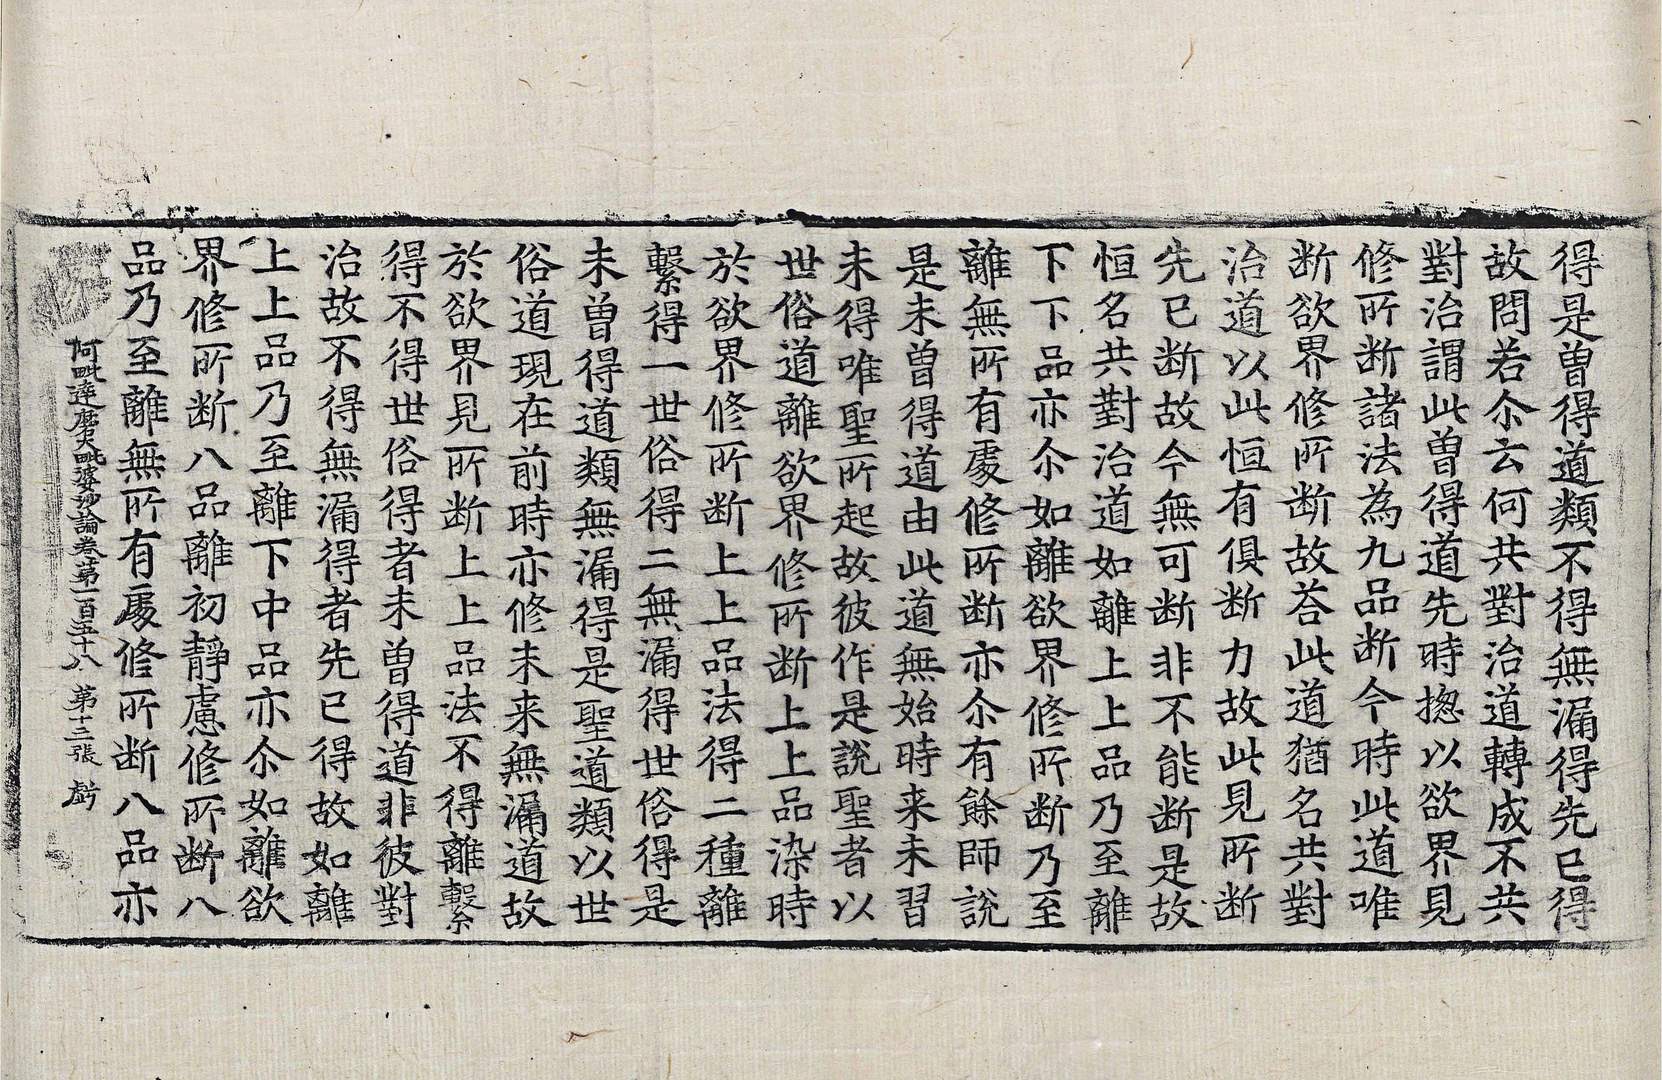 得是曽得道類不得無漏得先已得
故問若尒云何共對治道轉成不共
對治謂此曽得道先時揔以欲界見
修所断諸法為九品断今時此道唯
断欲界修所断故荅此道猶名共對
治道以此恒有俱断力故此見所断
先已断故今無可断非不能断是故
恒名共對治道如離上上品乃至離
下下品亦尒如離欲界修所断乃至
離無所有處修所断亦尒有餘師說
是未曽得道由此道無始時来未習
未得唯聖所起故彼作是說聖者以
世俗道離欲界修所断上上品染時
於欲界修所断上上品法得二種離
繫得一世俗得二無漏得世俗得是
未曽得道類無漏得是聖道類以世
俗道現在前時亦修未来無漏道故
於欲界見所断上上品法不得離繫
得不得世俗得者未曽得道非彼對
治故不得無漏得者先已得故如離
上上品乃至離下中品亦尒如離欲
界修所断八品離初靜慮修所断八
品乃至離無所有處修所断八品亦
阿毗達磨大毗婆沙論卷第一百五十八 第十三張 虧